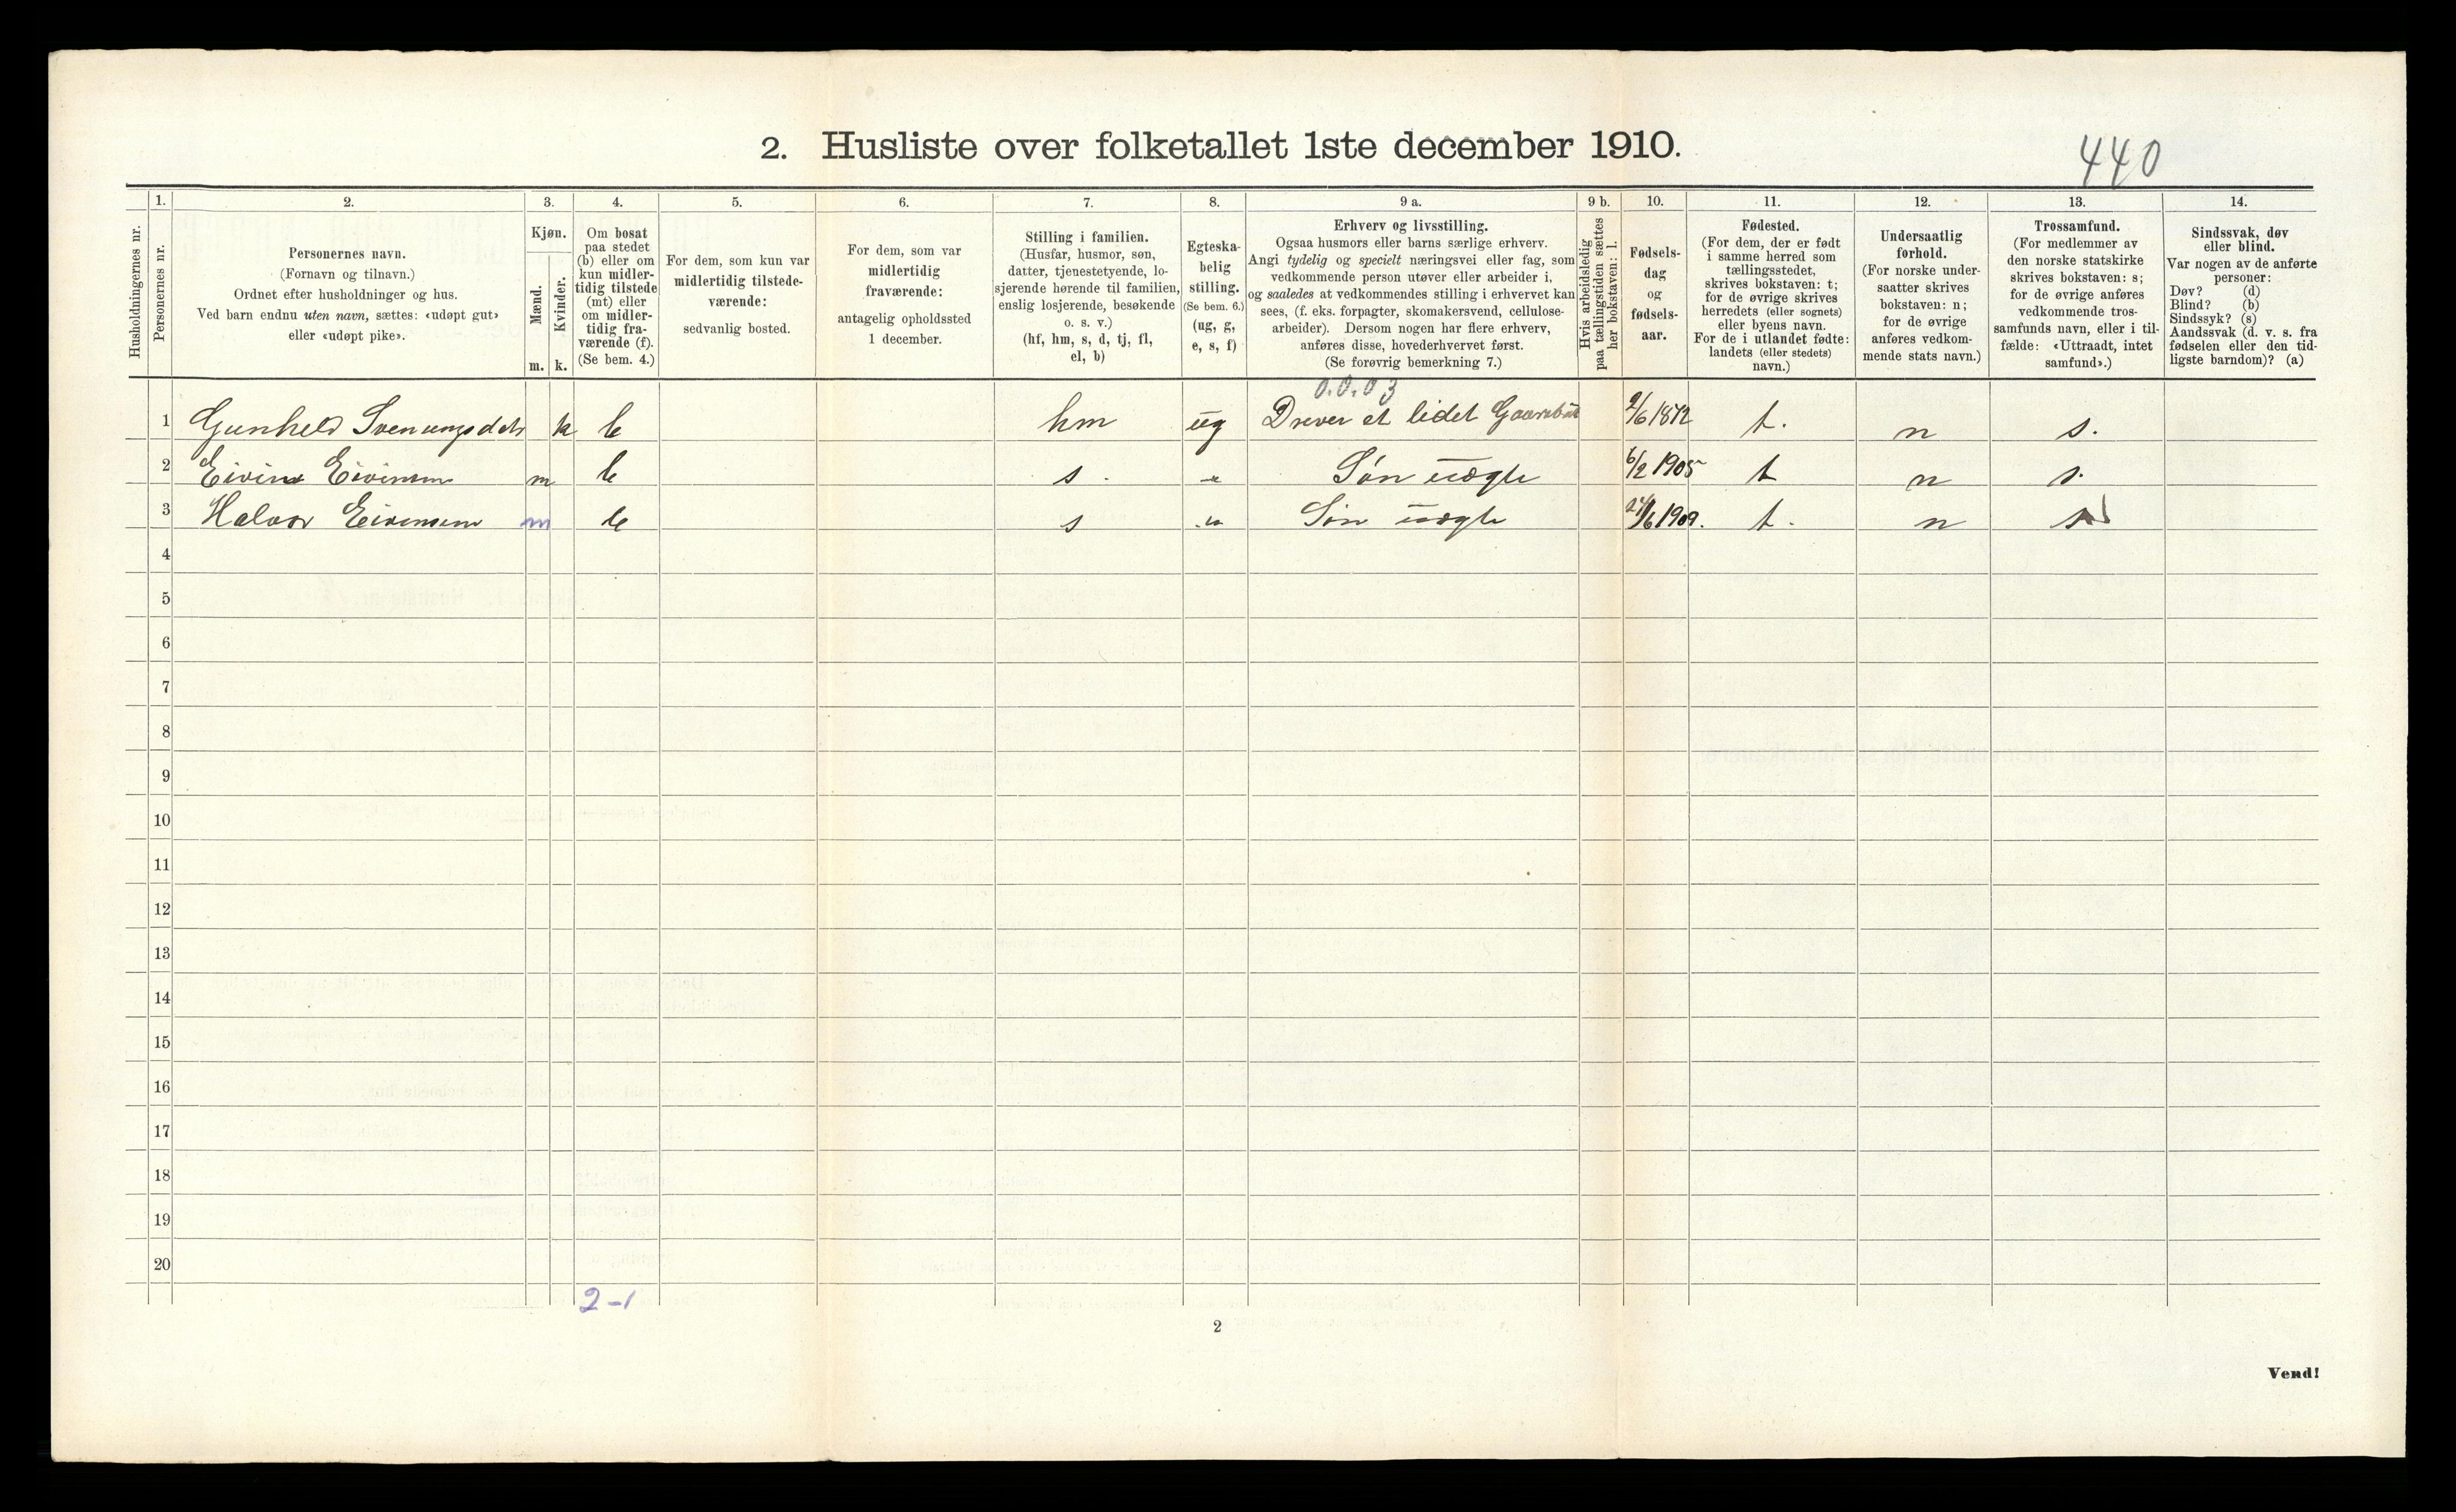 2. Husliste over folketallet 1ste december 1910.
440
Husholdningernes nr.
1.
Personernes nr.
2.
Personernes navn.
(Fornavn og tilnavn.)
Ordnet efter husholdninger og hus.
Ved barn endnu uten navn, sættes: «udøpt gut»
eller «udøpt pike».
3.
Kjøn.
Mænd.
Kvinder.
m. k.
4.
Om bosat
paa stedet
(b) eller om
kun midler-
tidig tilstede
(mt) eller
om midler-
tidig fra-
værende (f).
(Se bem. 4.)
5.
For dem, som kun var
midlertidig tilstede-
værende:
sedvanlig bosted.
6.
For dem, som var
midlertidig
fraværende:
antagelig opholdssted
1 december.
7.
Stilling i familien.
(Husfar, husmor, søn,
datter, tjenestetyende, lo-
sjerende hørende til familien,
enslig losjerende, besøkende
o. s. v.)
(hf, hm, s, d, tj, fl,
el, b)
8.
Egteska-
belig
stilling.
(Se bem. 6.)
(ug, g,
e, s, f)
9 a.
Erhverv og livsstilling.
Ogsaa husmors eller barns særlige erhverv.
Angi tydelig og specielt næringsvei eller fag, som
vedkommende person utøver eller arbeider i,
og saaledes at vedkommendes stilling i erhvervet kan
sees, (f. eks. forpagter, skomakersvend, cellulose-
arbeider). Dersom nogen har flere erhverv,
anføres disse, hovederhvervet først.
(Se forøvrig bemerkning 7.)
9 b.
Hvis arbeidsledig
paa tællingstiden sættes
her bokstaven: l.
10.
Fødsels-
dag
og
fødsels-
aar.
11.
Fødested.
(For dem, der er født
i samme herred som
tællingsstedet,
skrives bokstaven: t;
for de øvrige skrives
herredets (eller sognets)
eller byens navn.
For de i utlandet fødte:
landets (eller stedets)
navn.)
12.
Undersaatlig
forhold.
(For norske under-
saatter skrives
bokstaven: n;
for de øvrige
anføres vedkom-
mende stats navn.)
13.
Trossamfund.
(For medlemmer av
den norske statskirke
skrives bokstaven: s;
for de øvrige anføres
vedkommende tros-
samfunds navn, eller i til-
fælde: «Uttraadt, intet
samfund».)
14.
Sindssvak, døv
eller blind.
Var nogen av de anførte
personer:
Døv? (d)
Blind? (b)
Sindssyk? (s)
Aandssvak (d. v. s. fra
fødselen eller den tid-
ligste barndom)? (a)
0.0.03
1 Gunheld Svenungsdtr k b hm ug Drever et lidet 2/6 1872 t. n s.
2 Eivind Eivinsen m b s. " Søn uægte 6/2 1905 t n s.
3 Halvor Eivinsen m b s " Søn uægte 24/6 1909. t. n s
4
5
6
7
8
9
10
11
12
13
14
15
16
17
18
19
20
2-1
2
Vend!